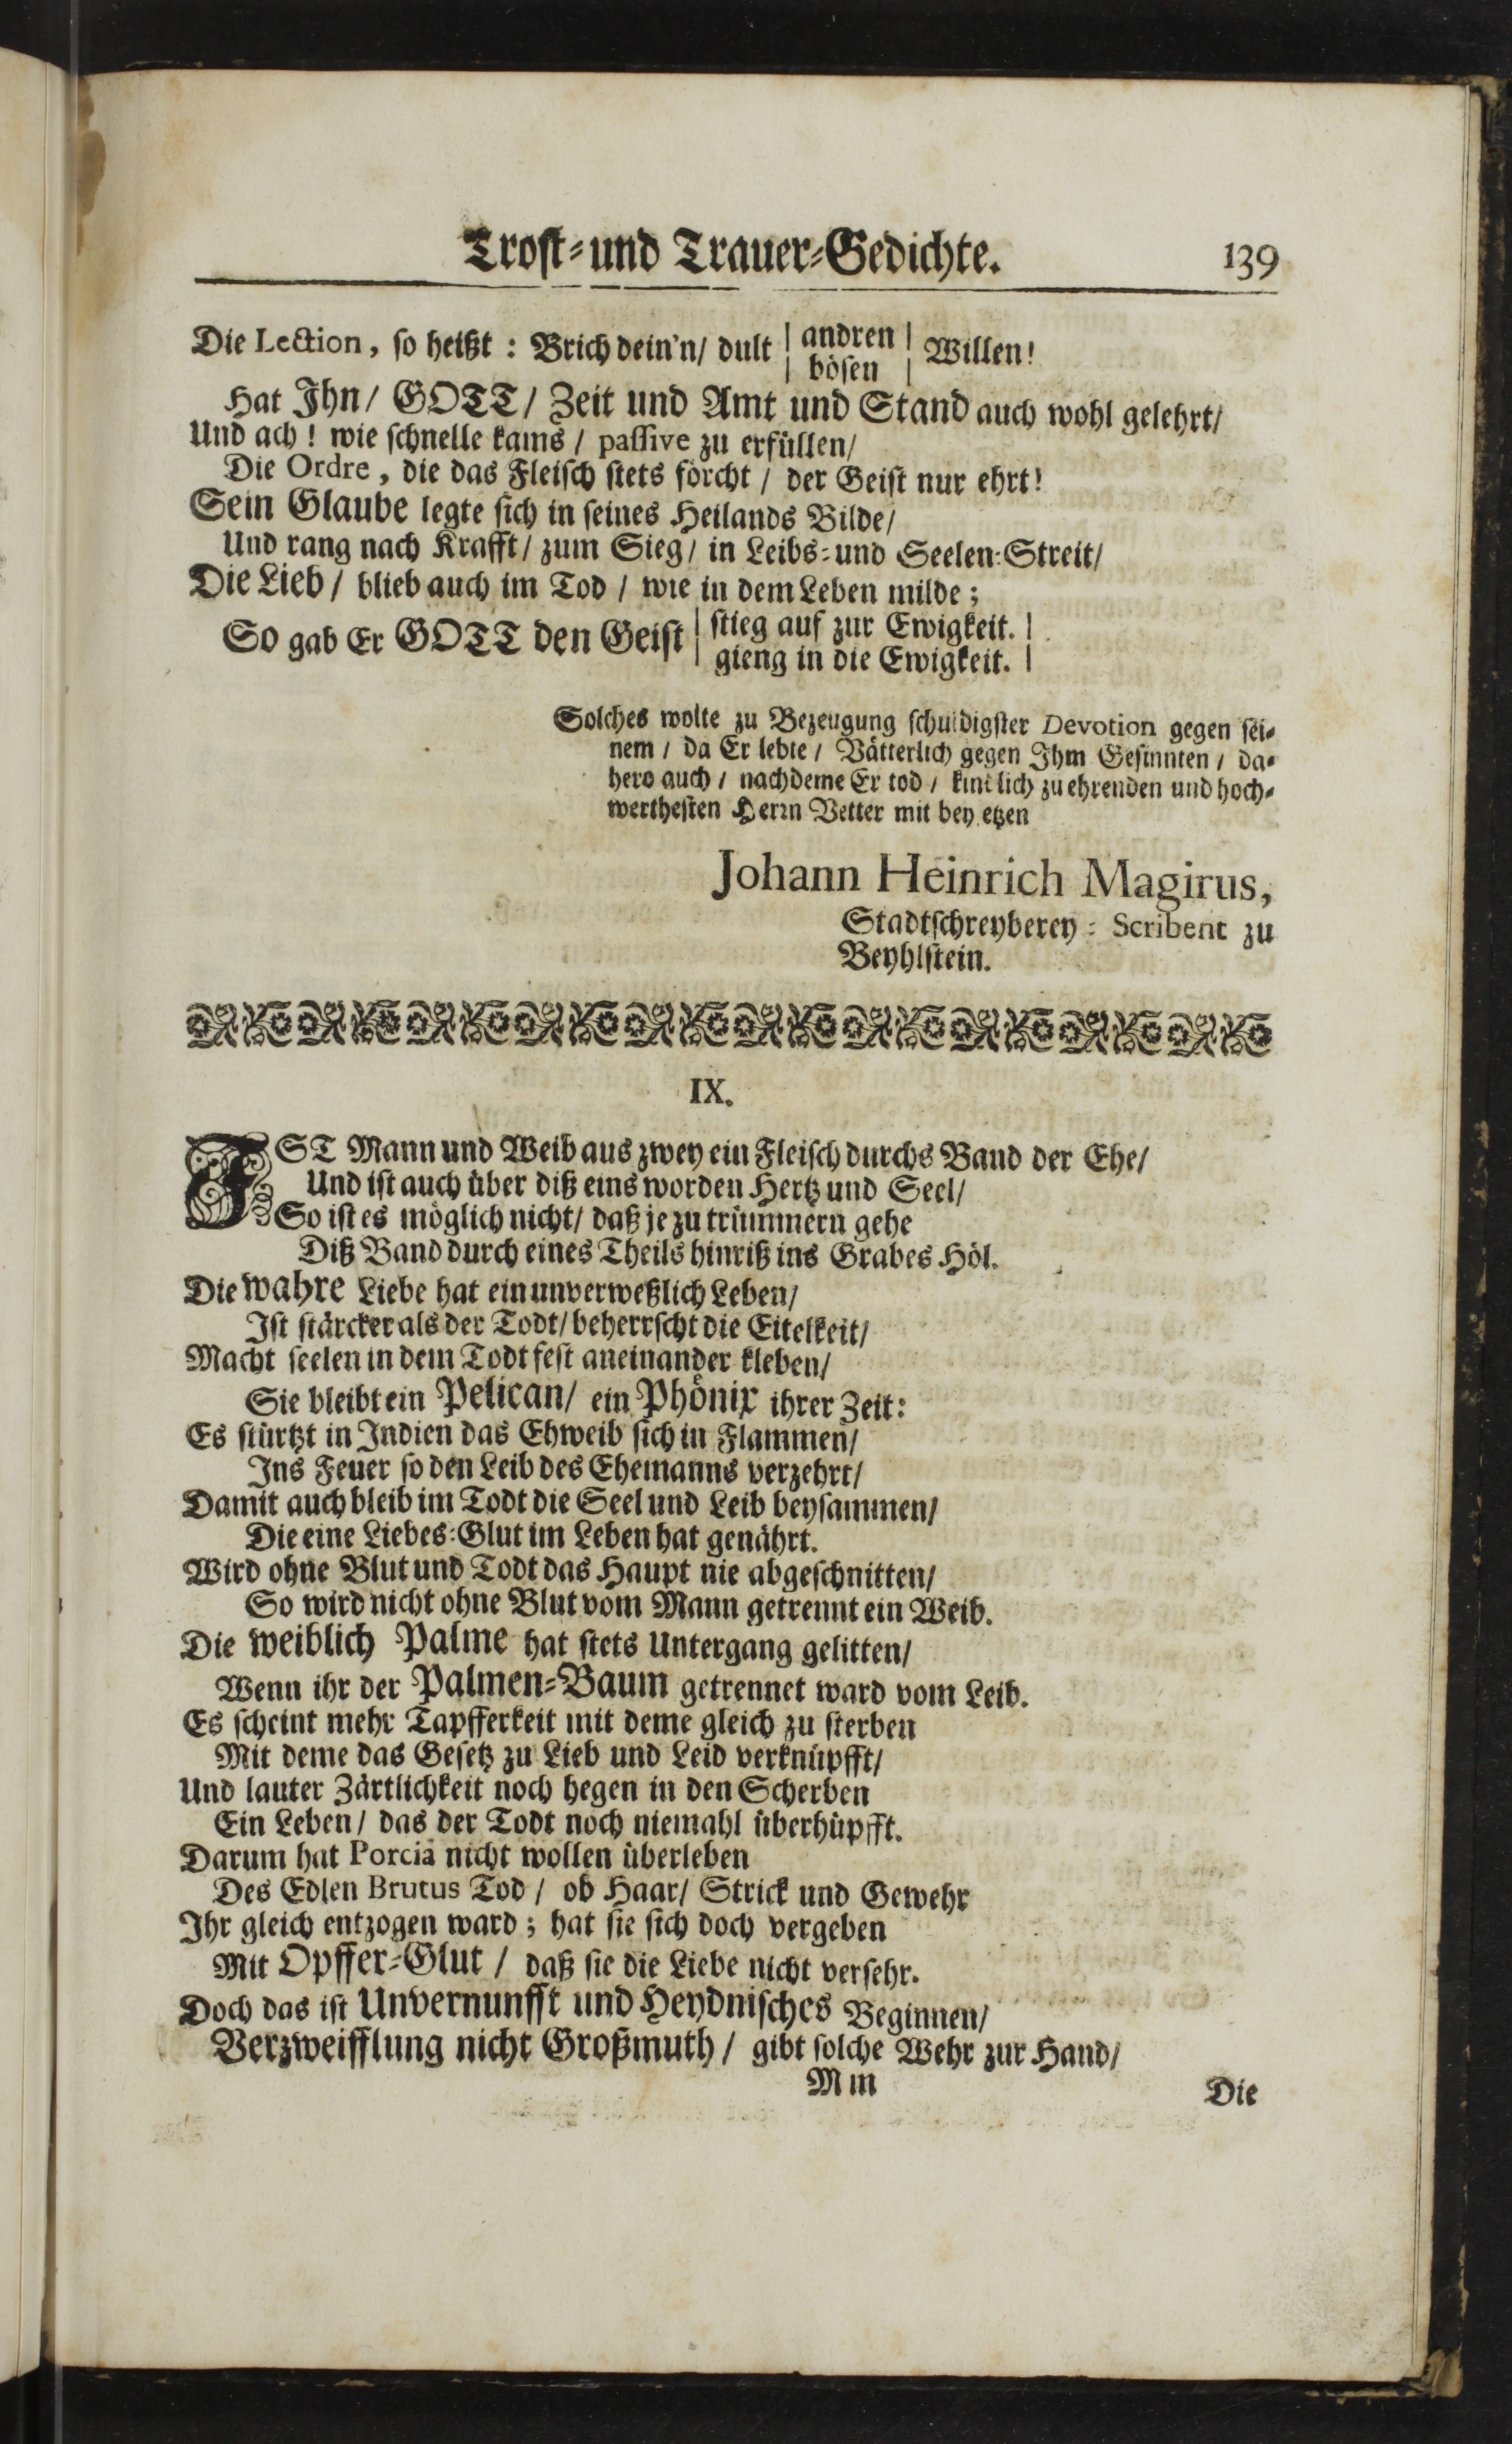 Trost- und Trauer-Gedichte. 139
Die Lection, so heißt: Brich dein'n/ dult | andren | Willen!
| bösen |
Hat Ihn/ GOTT/ Zeit und Amt und Stand auch wohl gelehrt/
Und ach! wie schnelle kams/ passive zu erfüllen/
Die Ordre, die das Fleisch stets förcht/ der Geist nur ehrt!
Sein Glaube legte sich in seines Heilands Bilde/
Und rang nach Krafft/ zum Sieg/ in Leibs- und Seelen-Streit/
Die Lieb/ blieb auch im Tod/ wie in dem Leben milde;
So gab Er GOTT den Geist | stieg auf zur Ewigkeit. |
| gieng in die Ewigkeit. |
Solches wolte zu Bezeugung schuldigster Devotion gegen sei-
nem/ da Er lebte/ Vätterlich gegen Ihm Gesinnten/ da-
hero auch/ nachdeme Er tod/ kindlich zu ehrenden und hoch-
werthesten Herrn Vetter mit bey etzen
Johann Heinrich Magirus,
Stadtschreyberey-Scribent zu
Beyhlstein.
IX.
IST Mann und Weib aus zwey ein Fleisch durchs Band der Ehe/
Und ist auch über diß eins worden Hertz und Seel/
So ist es möglich nicht/ daß je zu trümmern gehe
Diß Band durch eines Theils hinriß ins Grabes Höl.
Die wahre Liebe hat ein unverweßlich Leben/
Ist stärcker als der Todt/ beherrscht die Eitelkeit/
Macht seelen in dem Todt fest aneinander kleben/
Sie bleibt ein Pelican/ ein Phönix ihrer Zeit:
Es stürtzt in Indien das Ehweib sich in Flammen/
Ins Feuer so den Leib des Ehemanns verzehrt/
Damit auch bleib im Todt die Seel und Leib beysammen/
Die eine Liebes-Glut im Leben hat genährt.
Wird ohne Blut und Todt das Haupt nie abgeschnitten/
So wird nicht ohne Blut vom Mann getrennt ein Weib.
Die weiblich Palme hat stets Untergang gelitten/
Wenn ihr der Palmen-Baum getrennet ward vom Leib.
Es scheint mehr Tapfferkeit mit deme gleich zu sterben
Mit deme das Gesetz zu Lieb und Leid verknüpfft/
Und lauter Zärtlichkeit noch hegen in den Scherben
Ein Leben/ das der Todt noch niemahl überhüpfft.
Darum hat Porcia nicht wollen überleben
Des Edlen Brutus Tod/ ob Haar/ Strick und Gewehr
Ihr gleich entzogen ward; hat sie sich doch vergeben
Mit Opffer-Glut/ daß sie die Liebe nicht versehr.
Doch das ist Unvernunfft und Heydnisches Beginnen/
Verzweifflung nicht Großmuth/ gibt solche Wehr zur Hand/
Mm
Die